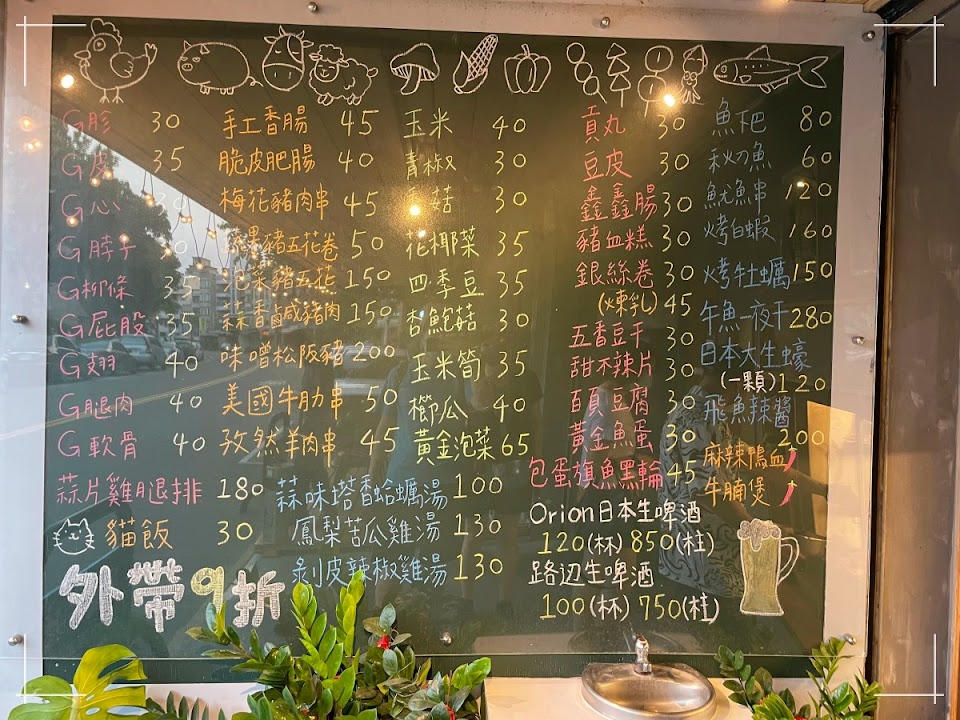 G胗 30
G皮 35
G心 30
G脖子
G柳條 35
G屁股 35
G翅 40
G腿肉 40
G軟骨 40
蒜片雞腿排 180
貓飯 30
外帶9折
手工香腸 45
脆皮肥腸 40
梅花豬肉串 45
豬五花卷 50
泡菜豬五花 150
蒜香鹹豬肉 150
味噌松阪豬 200
美國牛肋串 50
孜然羊肉串 45
玉米 40
青椒 30
香菇 30
花椰菜 35
四季豆 35
杏鮑菇 30
玉米筍 35
櫛瓜 40
黃金泡菜 65
蒜味塔香蛤蠣湯 100
鳳梨苦瓜雞湯 130
剝皮辣椒雞湯 130
貢丸 30
豆皮 30
鑫鑫腸 30
豬血糕 30
銀絲卷 30
(煉乳) 45
五香豆干 30
甜不辣片 30
百頁豆腐 30
黃金魚蛋 30
包蛋旗魚黑輪 45
Orion日本生啤酒
120(杯) 850(柱)
路辺生啤酒
100(杯) 750(柱)
魚下巴 80
秋刀魚 60
魷魚串 120
烤白蝦 160
烤牡蠣 150
午魚一夜干 280
日本大生蠔
(一顆) 120
飛魚辣醬
200
麻辣鴨血
牛腩煲